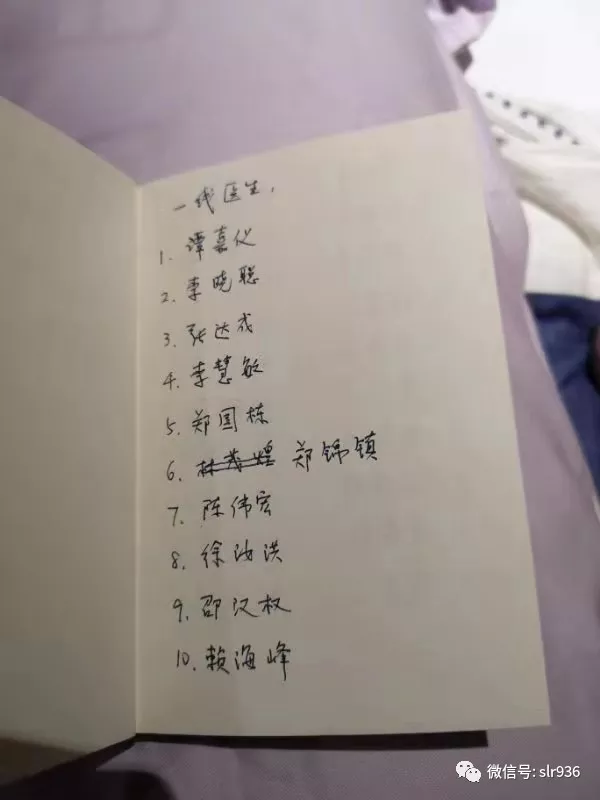 一线医生,
1. 谭嘉仪
2. 李晓聪
3. 张达成
4. 李慧敏
5. 郑国栋
6. 林茂煌 郑锦镇
7. 陈伟宏
8. 徐汝洪
9. 邵汉权
10. 赖海峰
微信号: slr936